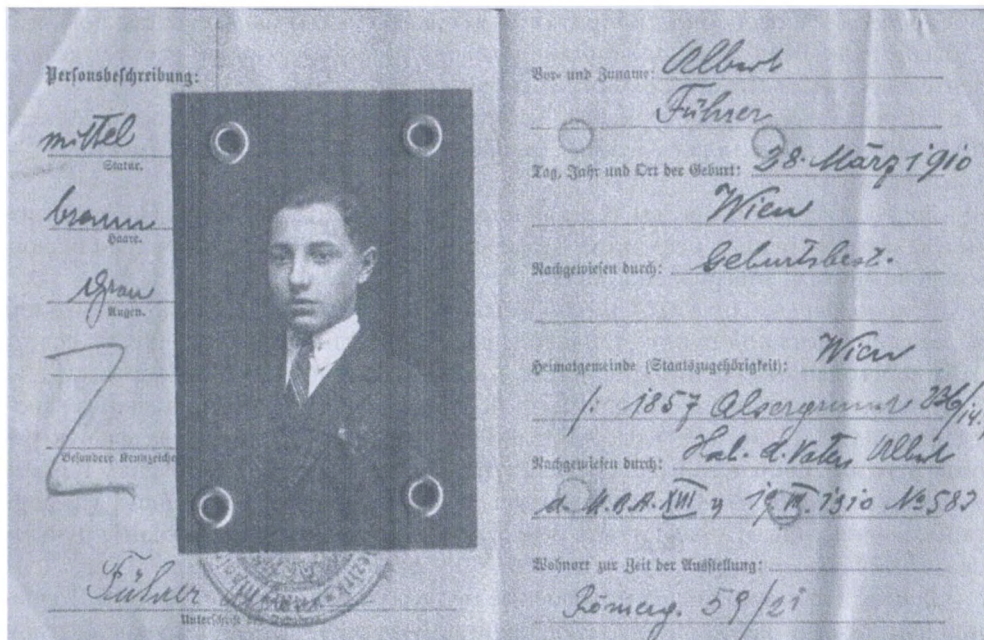 Personsbeschreibung:
mittel
Statur.
braun
Haare.
Grau
Augen.
Besondere Kennzeiche
Führer
Unterschrift des
Vor- und Zuname: Albert
Führer
Tag, Jahr und Ort der Geburt: 28. März 1910
Wien
Nachgewiesen durch: Geburtsbest.
Heimatgemeinde (Staatszugehörigkeit): Wien
/: 1857 Alsergrund 236/14.
Nachgewiesen durch: d. Vaters Albert
d. M.B.A. XIII 1910 No 583
Wohnort zur Zeit der Ausstellung:
Römerg. 59/21